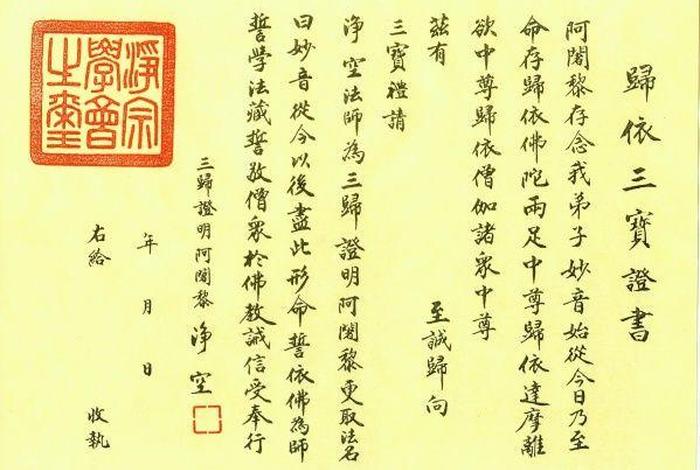 歸依三寶證書
阿闍黎存念我弟子妙音始從今日乃至
命存歸依佛陀兩足中尊歸依達摩離
欲中尊歸依僧伽諸衆中尊
茲有 至誠歸向
三寶禮請
淨空法師為三歸證明阿闍黎更取法名
曰妙音從今以後盡此形命誓依佛為師
誓學法藏誓敬僧衆於佛教誠信受奉行
三歸證明阿闍黎 淨空
年 月 日
右給 收執
淨宗
學會
之璽